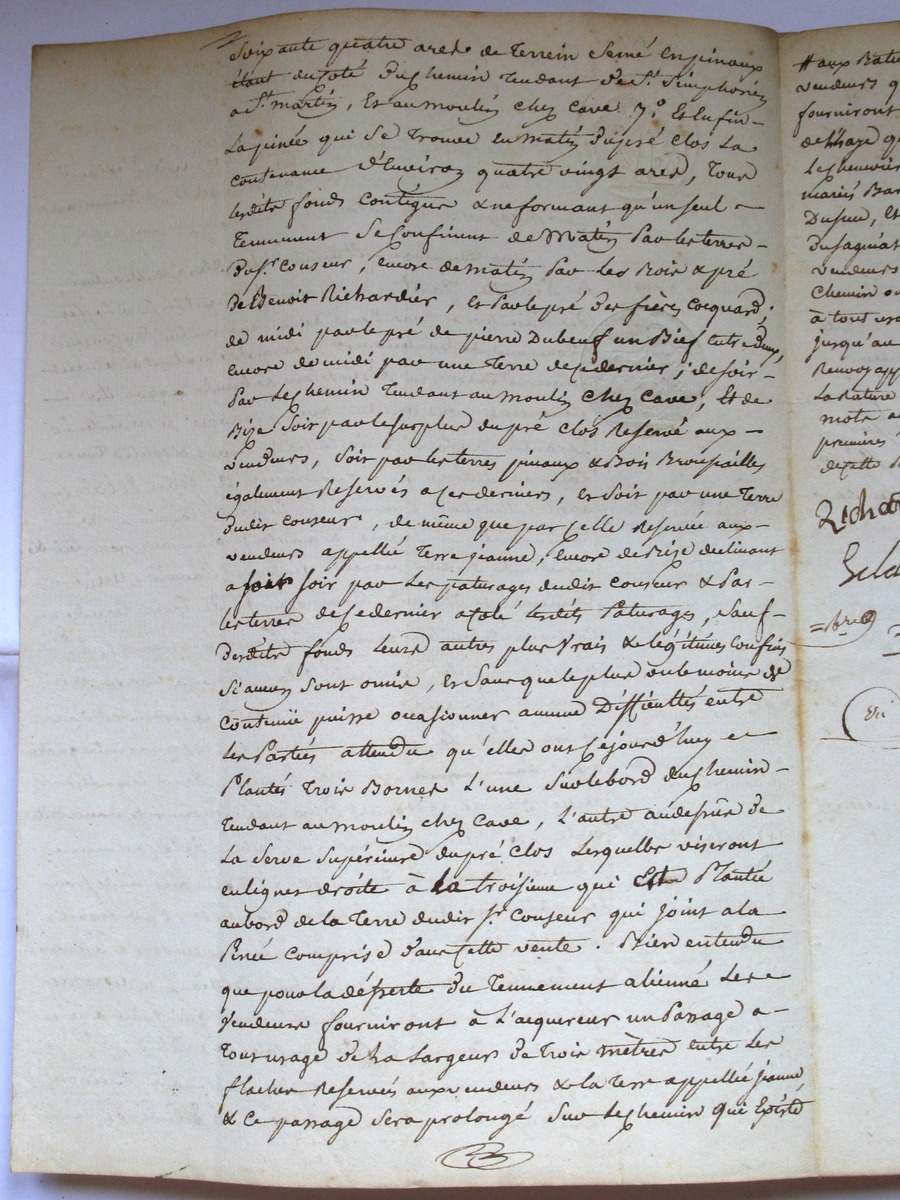 Soixante quatre ares de terrein semé en pinaux
étant du coté du chemin tendant de St. Simphorien
a St. martin, et au moulin chez Cave 7.o Et enfin
La pinée qui se trouve en matin du pré clos La
contenance d'environ quatre vingt ares, tous
lesdits fonds contigus & ne formant qu'un seul
tennement se confinent de matin par les terres
du sr. couseur, encore de matin par les Bois & pré
de Benoit Richardier, et par le pré des frères Cocquard;
de midi par le pré de pierre Dubeuf un Bief entredeux,
encore de midi par une terre de ce dernier; de soir
par le chemin tendant au moulin chez Cave, Et de
Bize soir par le surplus du pré clos Reservé aux
vendeurs, soir par les terres pinaux & Bois Broussailles
également Reservés a ces derniers, et soir par une terre
dudit couseur, de même que par celle reservée aux
vendeurs appellée terre jeanne, encore de Bize declinant
a soir par les paturages dudit couseur & par
les terres de ce dernier a coté lesdits paturages, sauf
desdits fonds leurs autres plus vrais & légitimes confins
si aucuns sont omis, et sans que le plus ou le moins de
contenüe puisse occasionner aucune Difficultés entre
les Parties attendu qu'elles ont cejourd'huy
Plantés trois Bornes L'une sur le bord du chemin
tendant au moulin chez Cave, L'autre au dessus de
La Serve supérieure du pré clos Lesquelles viseront
en lignes droite à la troisieme qui Est Plantée
au bord de la terre dudit sr. couseur qui joint a la
Pinée comprise dans cette vente. Bien entendu
que pour la désserte du tennement alienné les
vendeurs fourniront à L'acquereur un Passage a
tout usage de la Largeur de trois mètres entre les
flaches Reservées aux vendeurs & la terre appellée jeanne
& ce passage sera prolongé sur le chemin qui Existe
# aux
vendeurs
fourniront
mariés
vendeurs
chemin
à tout
jusqu'au
mots
premieres